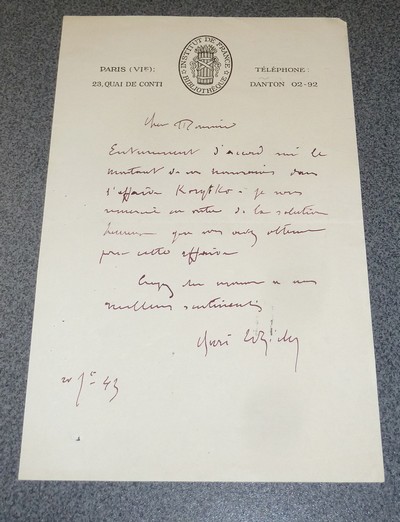 PARIS (VIe)
23, QUAI DE CONTI
INSTITUT DE FRANCE
BIBLIOTHÈQUE
TÉLÉPHONE :
DANTON 02-92
Cher Monsieur
Entièrement d'accord sur le
montant de vos honoraires dans
l'affaire je vous
remercie en outre de la solution
heureuse que vous avez obtenue
pour cette affaire
Croyez cher monsieur à mes
meilleurs sentiments
43